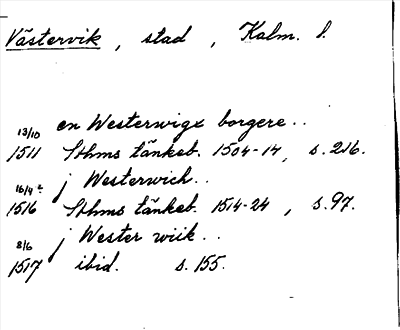 Västervik, stad, Kalm. l.
13/10 en Westerwigx borgere..
1511 Sthms tänkeb. 1504-14, s.216.
16/4 j Westerwich..
1516 Sthms tänkeb. 1514-24, s.97.
8/6 j Wester wiik..
1517 ibid. s.155.